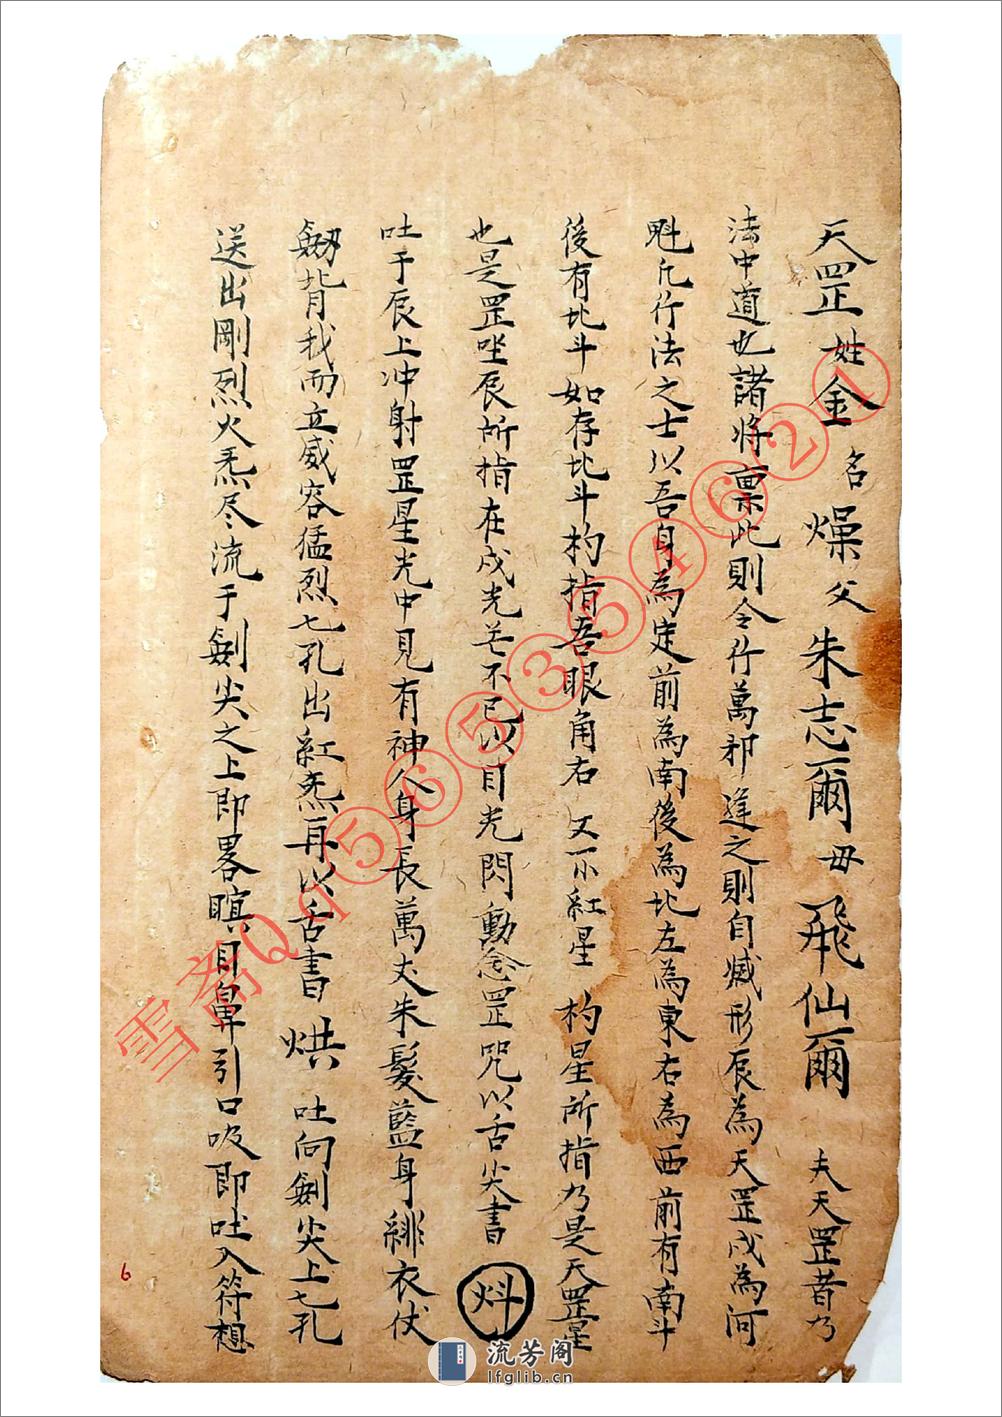 天罡姓金名燥父朱志爾母飛仙爾夫天罡者乃
法中道也諸將稟此則令行萬邪逢之則自滅形辰為天罡戌為河
魁凡行法之士以吾身為定前為南後為北左為東右為西前有南斗
後有北斗如存北斗杓指吾眼角右又一小紅星杓星所指乃是天罡星
也是罡坐辰所指在戌光芒不已以目光閃動念罡咒以舌尖書㶡
吐于辰上冲射罡星光中見有神人身長萬丈朱髮藍身緋衣仗
劔背我而立威容猛烈七孔出紅炁再以舌書烘吐向劍尖上七孔
送出剛烈火炁尽流于劍尖之上即畧瞑目鼻引口吸即吐入符想
6
雪斋Qq565354621
流芳阁
lfglib.cn